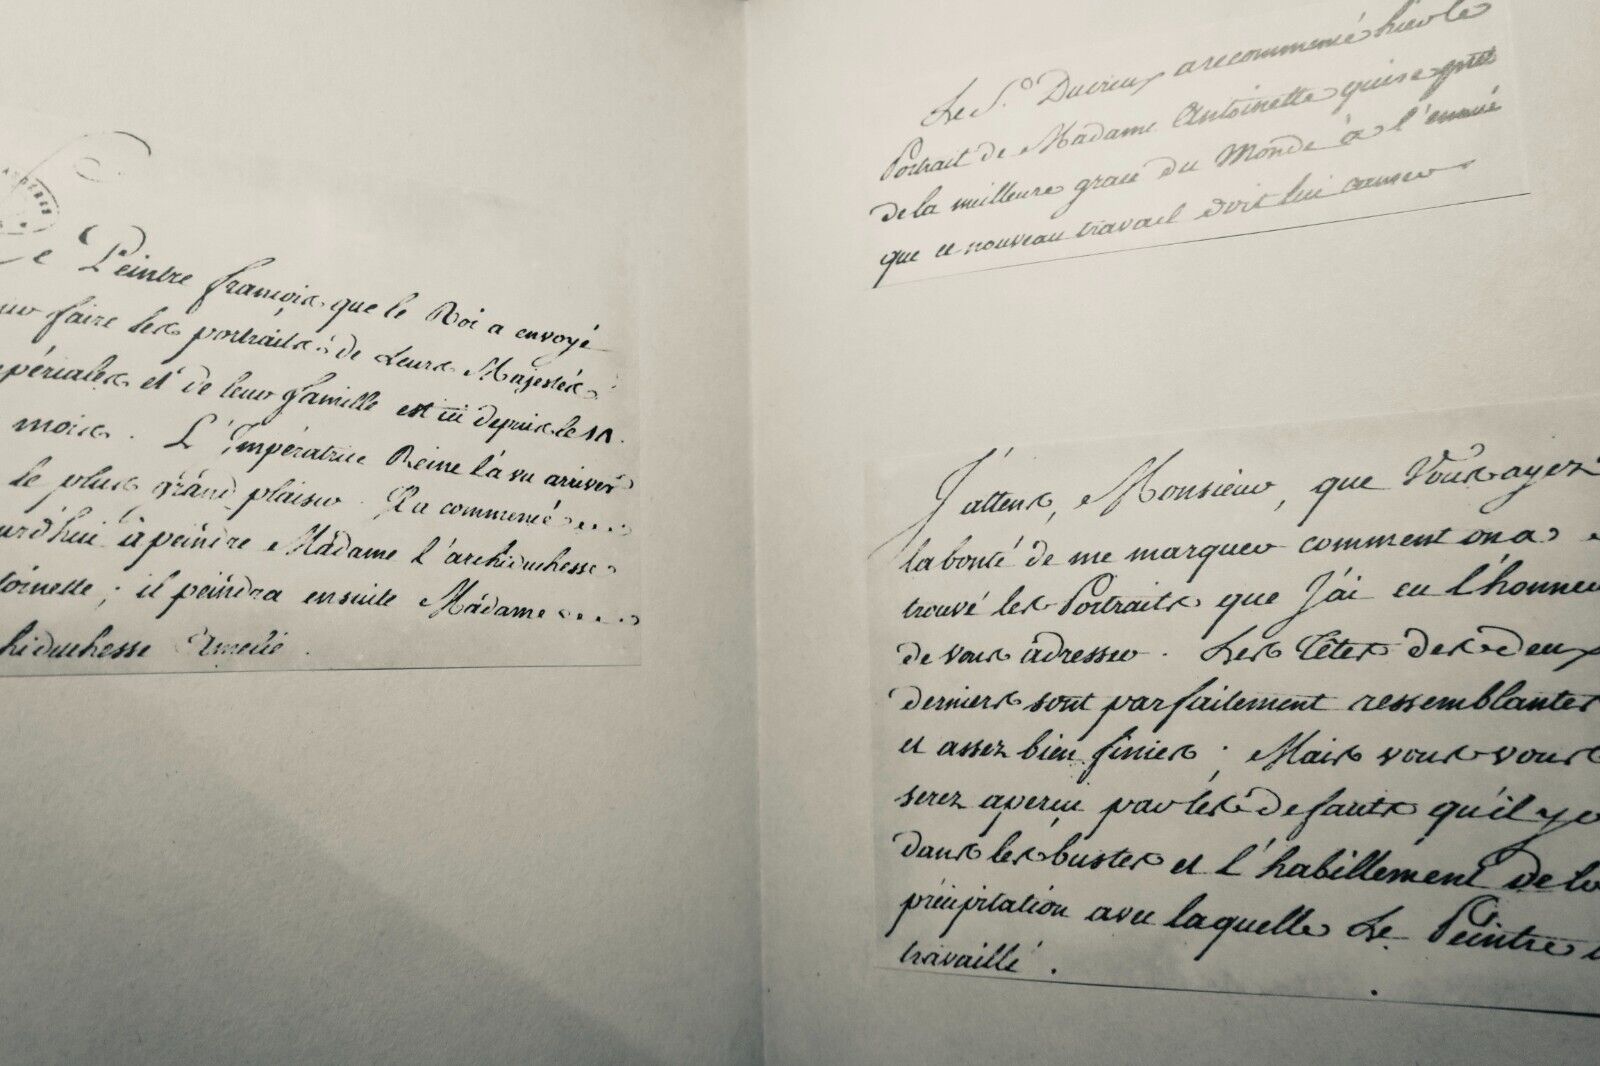 e Peintre françois que le Roi a envoyé
faire les portraits de Leurs Majestés
périales et de leur famille est ici depuis le
mois. L'Impératrice Reine l'a vu arriver
le plus grand plaisir. Il a commencé
urd'hui à peindre Madame l'archiduchesse
toinette; il peindra ensuite Madame
hiduchesse Amelie.
Le S.o Ducreux a recommencé hier le
Portrait de Madame Antoinette qui se prete
de la meilleure grace du Monde à l'ennui
que ce nouveau travail doit lui causer
J'attens, Monsieur, que Vous ayez
la bonté de me marquer comment on a
trouvé les Portraits que J'ai eu l'honneu
de vous adresser. Les têtes des deux
derniers sont parfaitement ressemblantes
et assez bien finies; Mais vous vous
serez aperçu par les defauts qu'il y a
dans les bustes et l'habillement de la
précipitation avec laquelle Le Peintre
travaillé.